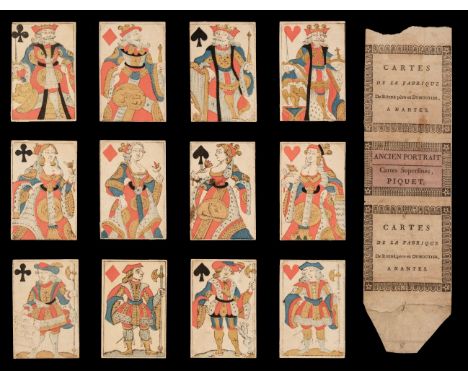 CARTES
DE LA FABRIQUE
De père et
A NANTES.
ANCIEN PORTRAIT
Cartes Superfines,
PIQUET.
CARTES
DE LA FABRIQUE
De père et
A NANTES.